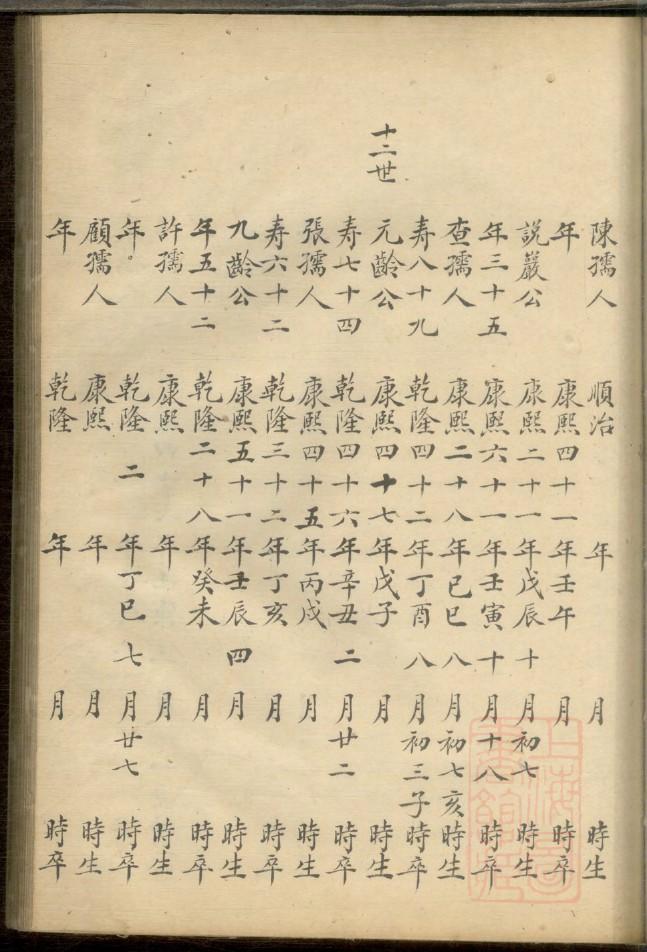 陳孺人 順治 年 月 時生
年 康熙四十一年壬午 月 時卒
説嚴公 康熙二十一年戊辰十月初七 時生
年三十五 康熙六十一年壬寅十月十八 時卒
查孺人 康熙二十八年己巳八月初七亥時生
寿八十九 乾隆四十二年丁酉八月初三子時卒
十二世 元齡公 康熙四十七年戊子 月 時生
寿七十四 乾隆四十六年辛丑二月廿二 時卒
張孺人 康熙四十五年丙戌 月 時生
寿六十二 乾隆三十二年丁亥 月 時卒
九齡公 康熙五十一年壬辰四月 時生
年五十二 乾隆二十八年癸未 月 時卒
許孺人 康熙 年 月 時生
年。 乾隆二年丁巳七月廿七 時卒
顧孺人 康熙 年 月 時生
年 乾隆 年 月 時卒